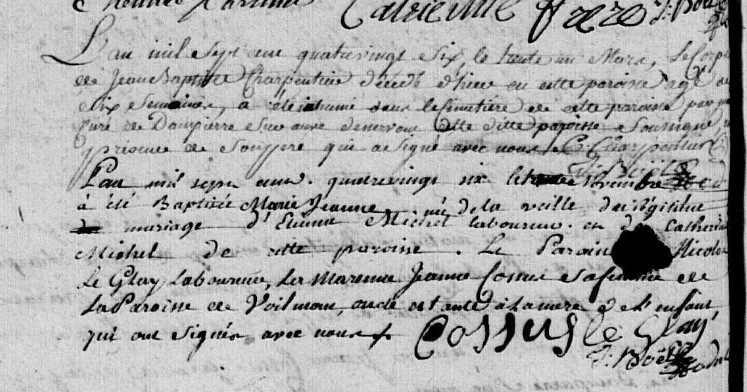 Catrieville frere J: Boëlle
L'an mil sept cent quatrevingt six, le trente un Mars, le Corps
de Jean Baptiste Charpentier décédé d'hier en cette paroisse agé de
six semaines, a été inhumé dans le cimetière de cette paroisse par
Curé de Dampierre cette ditte paroisse soussigné
présence de son pere qui a signé avec nous C Charpentier
J: Boëlle
L'an mil sept cent quatrevingt six le novembre
à été Baptisée Marie Jeanne née de la veille du légitime
mariage d'Etienne Michel laboureur et de Catherine
Michel de cette paroisse. Le Parain Nicolas
Le Glay Laboureur, La Mareine Jeanne Cossus sa femme de
La Paroisse de Voilmon, oncle et tante à la mere de l'enfant
qui ont signés avec nous Cossus le Glay
J: Boëlle